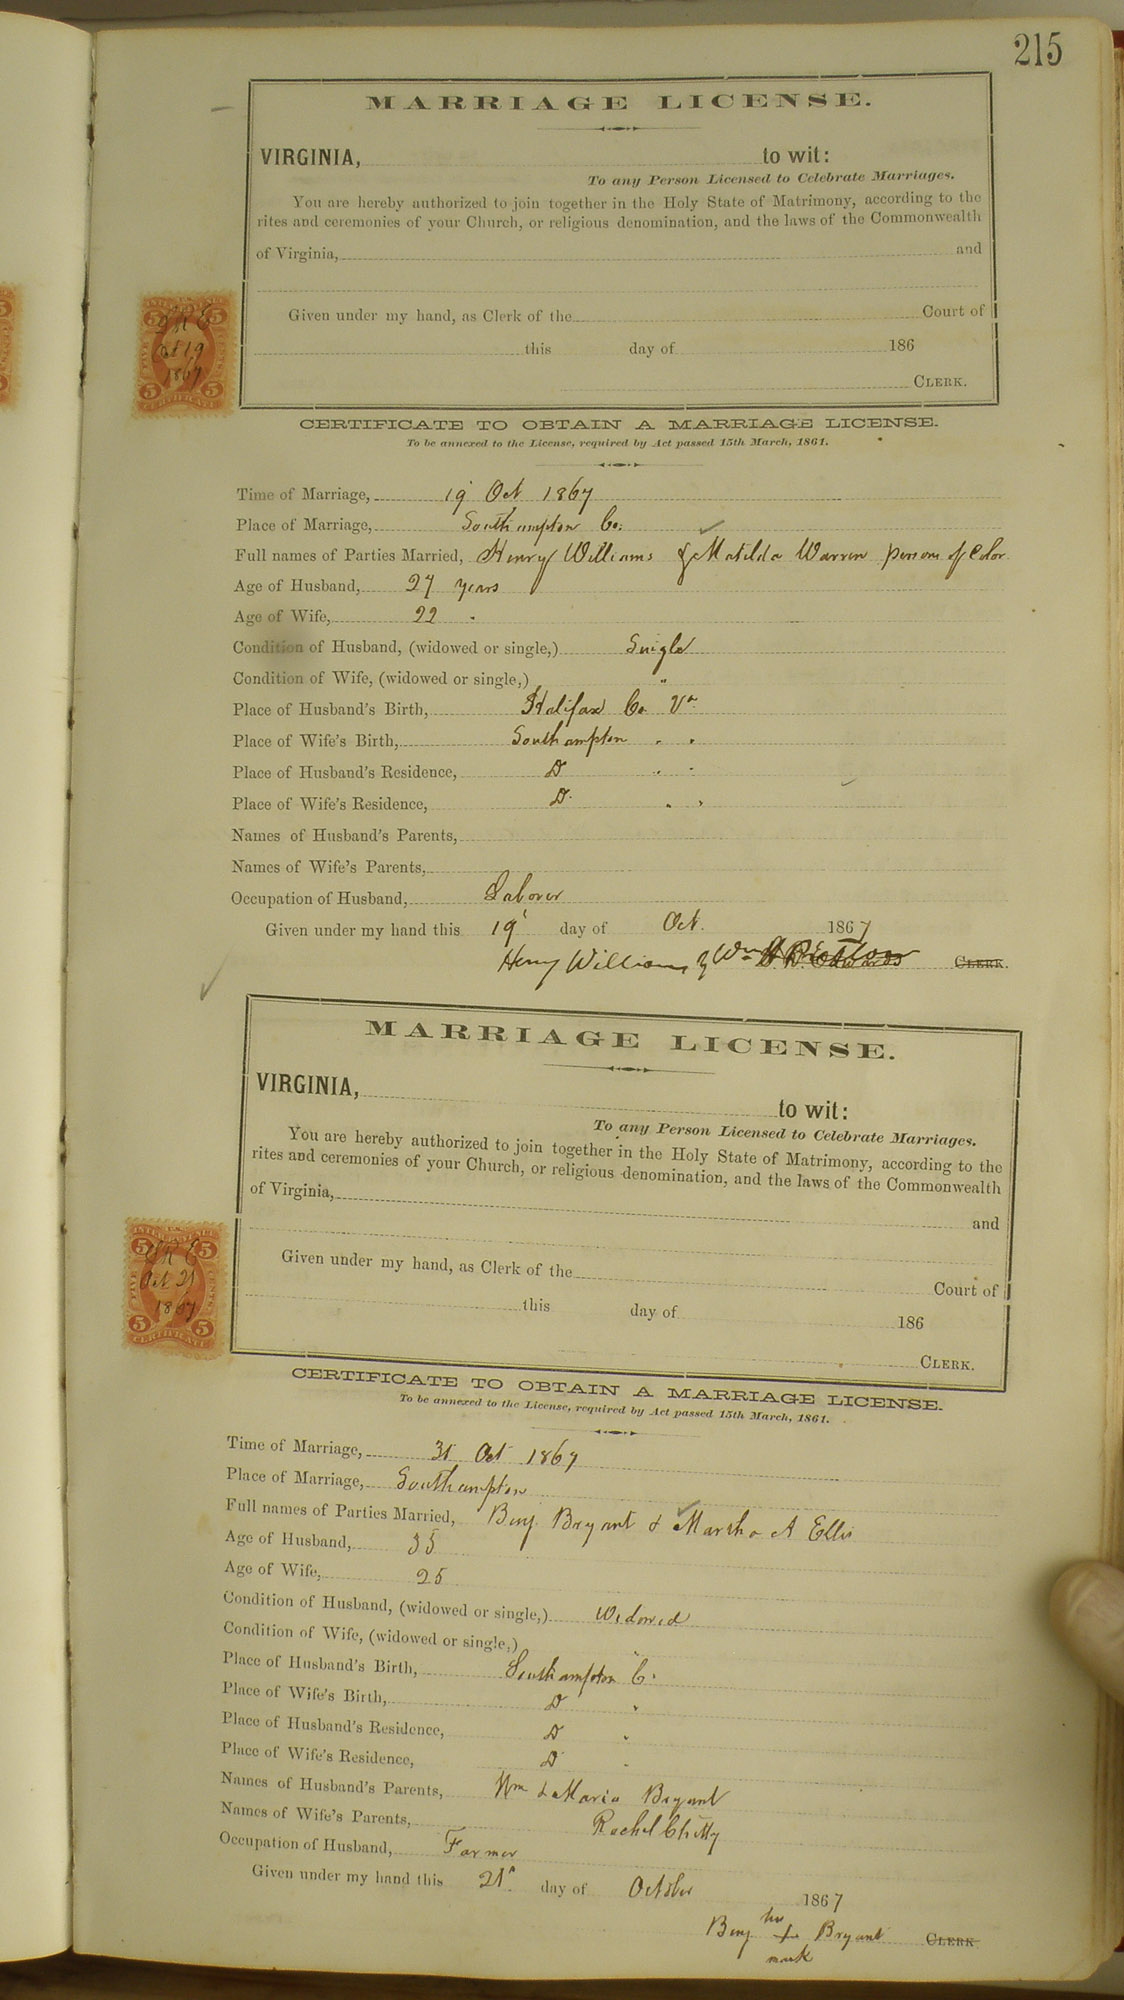 215
MARRIAGE LICENSE.
VIRGINIA, to wit:
To any Person Licensed to Celebrate Marriages.
You are hereby authorized to join together in the Holy State of Matrimony, according to the
rites and ceremonies of your Church, or religious denomination, and the laws of the Commonwealth
of Virginia, and
Given under my hand, as Clerk of the Court of
this day of 186
CLERK.
5 5
Oct 19
1867
FIVE CENTS
5 5
CERTIFICATE
CERTIFICATE TO OBTAIN A MARRIAGE LICENSE.
To be annexed to the License, required by Act passed 15th March, 1861.
Time of Marriage, 19 Oct 1867
Place of Marriage, Southampton Co.
Full names of Parties Married, Henry Williams & Matilda Warren persons of Color
Age of Husband, 27 years
Age of Wife, 22 "
Condition of Husband, (widowed or single,) Single
Condition of Wife, (widowed or single,) "
Place of Husband's Birth, Halifax Co Va
Place of Wife's Birth, Southampton " "
Place of Husband's Residence, Do " "
Place of Wife's Residence, Do " "
Names of Husband's Parents,
Names of Wife's Parents,
Occupation of Husband, Laborer
Given under my hand this 19 day of Oct. 1867
Henry Williams CLERK.
MARRIAGE LICENSE.
VIRGINIA, to wit:
To any Person Licensed to Celebrate Marriages.
You are hereby authorized to join together in the Holy State of Matrimony, according to the
rites and ceremonies of your Church, or religious denomination, and the laws of the Commonwealth
of Virginia, and
Given under my hand, as Clerk of the Court of
this day of 186
CLERK.
5 5
Oct 21
1867
FIVE CENTS
5 5
CERTIFICATE
CERTIFICATE TO OBTAIN A MARRIAGE LICENSE.
To be annexed to the License, required by Act passed 15th March, 1861.
Time of Marriage, 31 Oct 1867
Place of Marriage, Southampton
Full names of Parties Married, Benj. Bryant & Martha A Ellis
Age of Husband, 35
Age of Wife, 25
Condition of Husband, (widowed or single,) Widowed
Condition of Wife, (widowed or single,) "
Place of Husband's Birth, Southampton C.
Place of Wife's Birth, Do "
Place of Husband's Residence, Do "
Place of Wife's Residence, Do "
Names of Husband's Parents, Wm & Maria Bryant
Names of Wife's Parents, Rachel Chitty
Occupation of Husband, Farmer
Given under my hand this 21st day of October 1867
his
Benj. + Bryant CLERK
mark